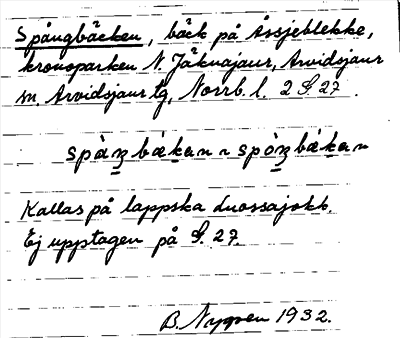 Spångbäcken, bäck på Åssjeblekke,
kronoparken N. Jäknajaur, Arvidsjaur
sn. Arvidsjaur lg, Norrb. l. 2 S. 27.
spàŋbäkan ~ spòŋbäkan
Kallas på lappska duossajokk.
Ej upptagen på S. 27.
B. Nygren 1932.